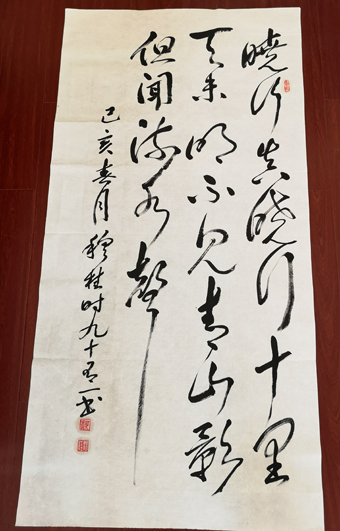 晓行真晓行十里
天未明不见青山影
但闻流水声
己亥春月穆桂时九十有一书